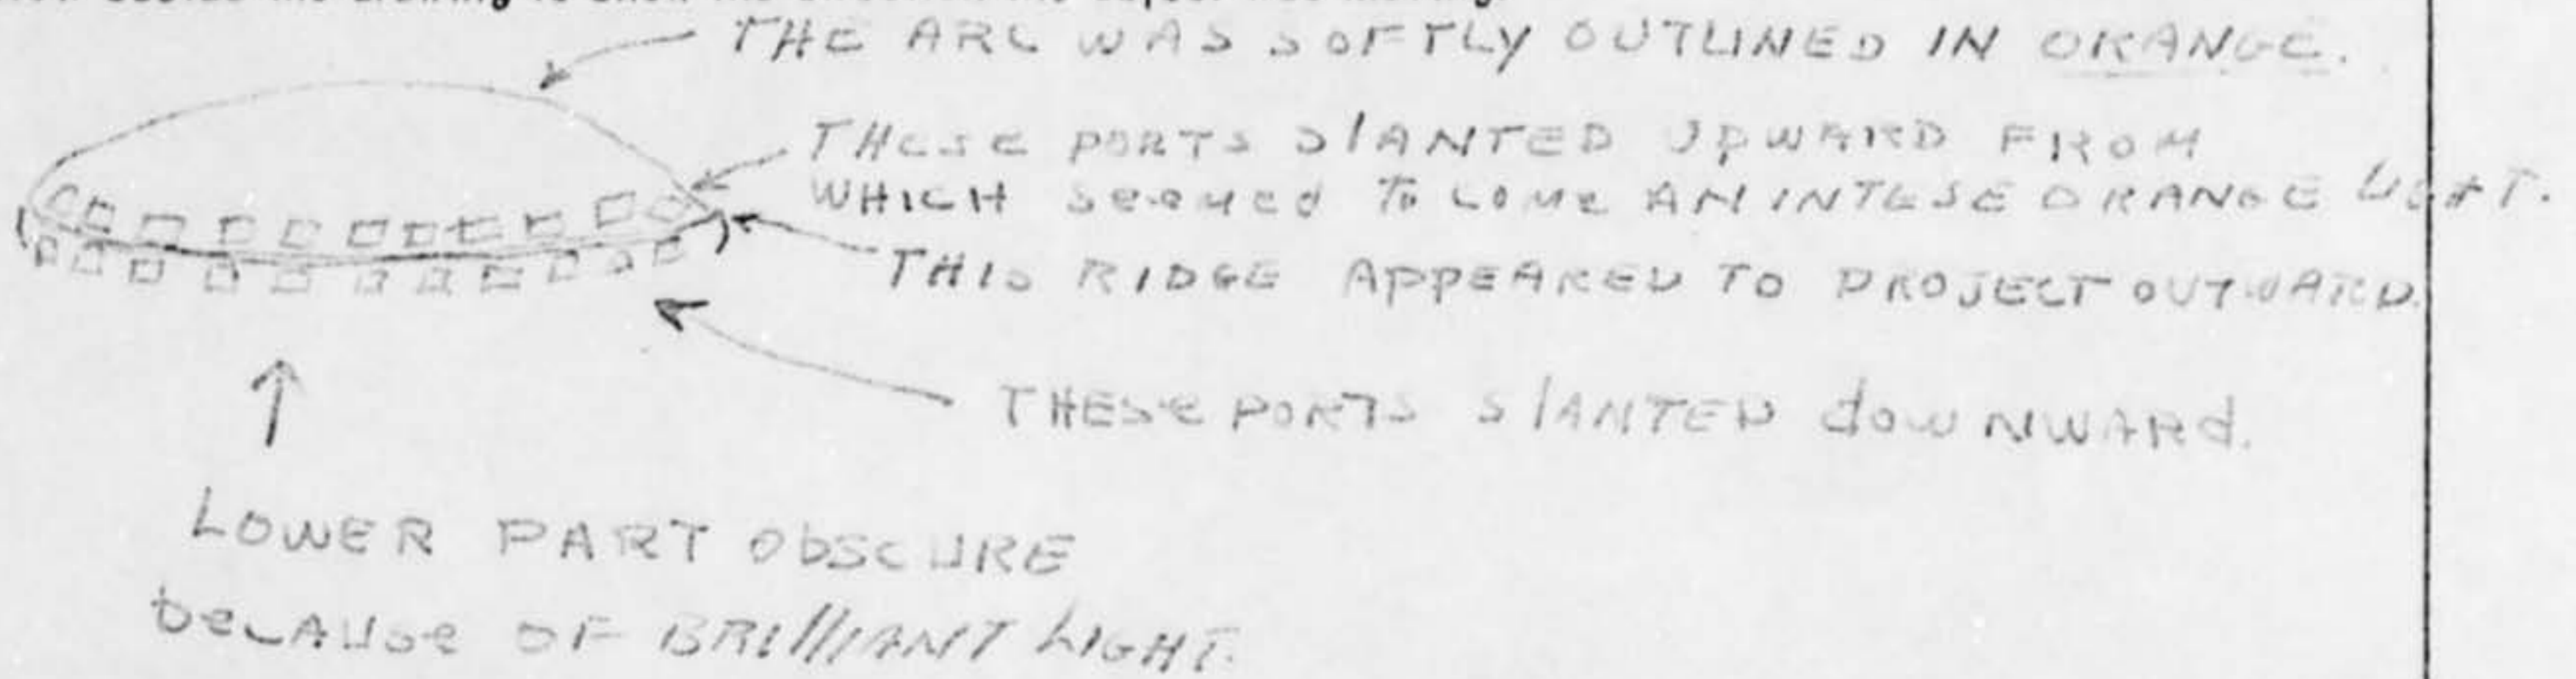 THE ARC WAS SOFTLY OUTLINED IN ORANGE.
THESE PORTS SLANTED UPWARD FROM
WHICH seemed To come AN INTESE ORANGE LIGHT.
THIS RIDGE APPEARED TO PROJECT OUTWARD.
THESE PORTS SLANTED downwARd.
LOWER PART ObSCURE
becAUse OF BRIllIANT LIGHT.